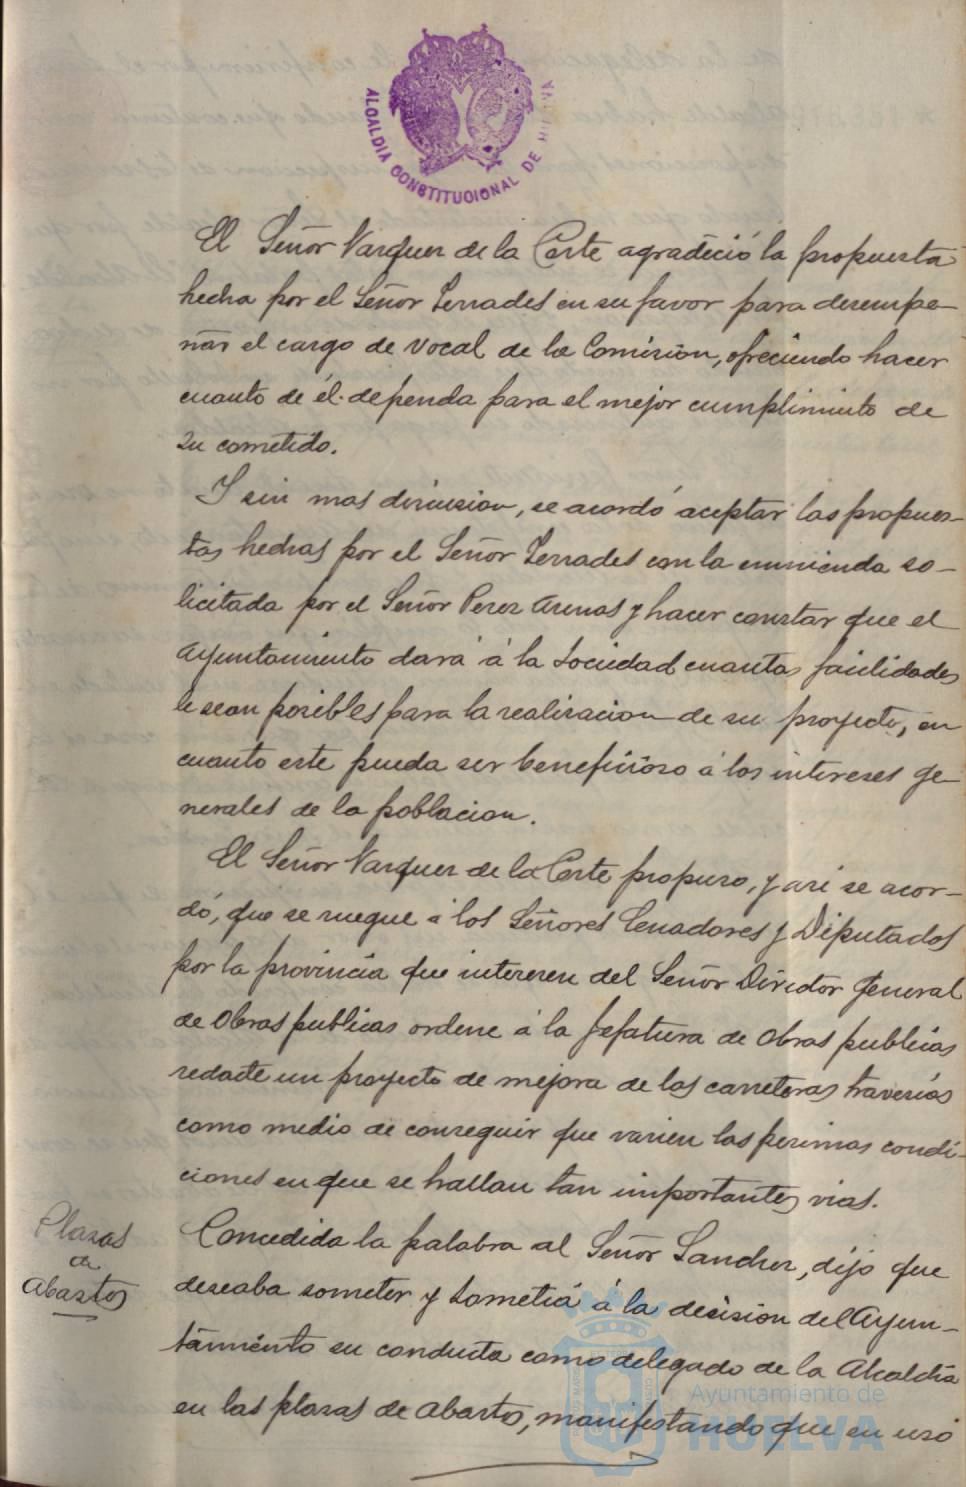 ALCALDIA CONSTITUCIONAL DE HUELVA
El Señor Vazquez de la Corte agradeció la propuesta
hecha por el Señor Terrades en su favor para desempe-
ñar el cargo de vocal de la Comision, ofreciendo hacer
cuanto de él dependa para el mejor cumplimiento de
su cometido.
Y sin mas discusion, se acordó aceptar las propues-
tas hechas por el Señor Terrades con la enmienda so-
licitada por el Señor Perez Arenas y hacer constar que el
Ayuntamiento dará á la Sociedad cuantas facilidades
le sean posibles para la realizacion de su proyecto, en
cuanto este pueda ser beneficioso á los intereses ge-
nerales de la poblacion.
El Señor Vazquez de la Corte propuso, y asi se acor-
dó, que se ruegue á los Señores Senadores y Diputados
por la provincia que interesen del Señor Director general
de Obras publicas ordene á la Jefatura de Obras publicas
redacte un proyecto de mejora de las carreteras travesías
como medio de conseguir que varien las pesimas condi-
ciones en que se hallan tan importantes vias.
Plazas
de
Abastos
Concedida la palabra al Señor Sanchez, dijo que
deseaba someter y sometiá á la decision del Ayun-
tamiento su conducta como delegado de la Alcaldía
en las plazas de abasto, manifestando que en uso
Ayuntamiento de
HUELVA